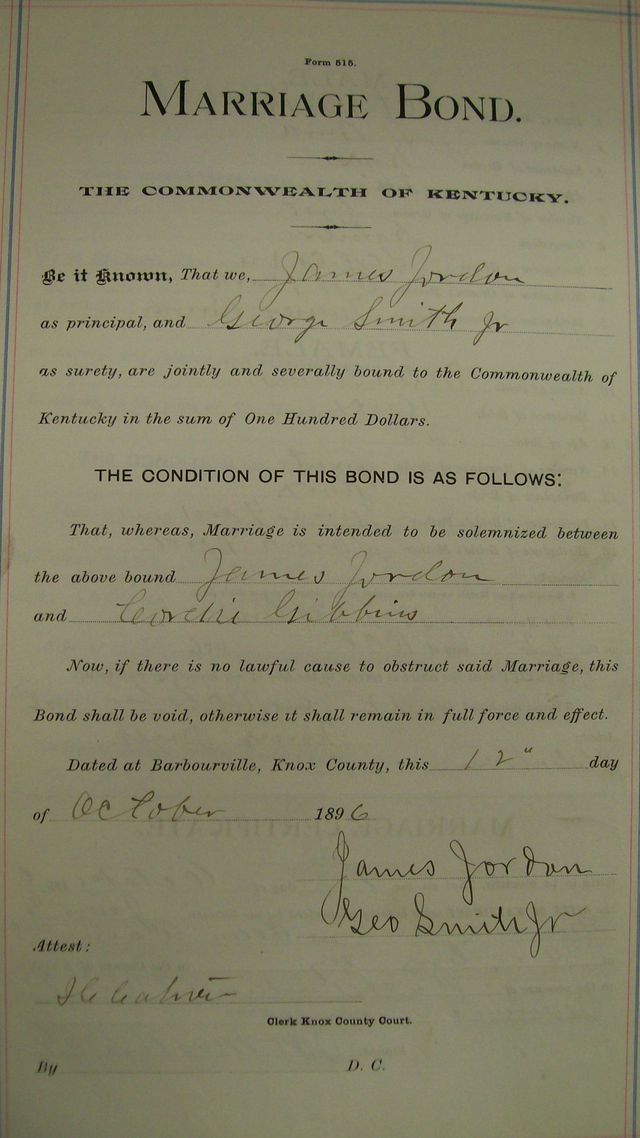 Form 515.
MARRIAGE BOND.
THE COMMONWEALTH OF KENTUCKY.
Be it Known, That we, James Jordon
as principal, and George Smith Jr
as surety, are jointly and severally bound to the Commonwealth of
Kentucky in the sum of One Hundred Dollars.
THE CONDITION OF THIS BOND IS AS FOLLOWS:
That, whereas, Marriage is intended to be solemnized between
the above bound James Jordon
and Cordie Gibbins
Now, if there is no lawful cause to obstruct said Marriage, this
Bond shall be void, otherwise it shall remain in full force and effect.
Dated at Barbourville, Knox County, this 12" day
of October 1896
James Jordon
Geo Smith Jr
Attest:
Clerk Knox County Court.
By D. C.